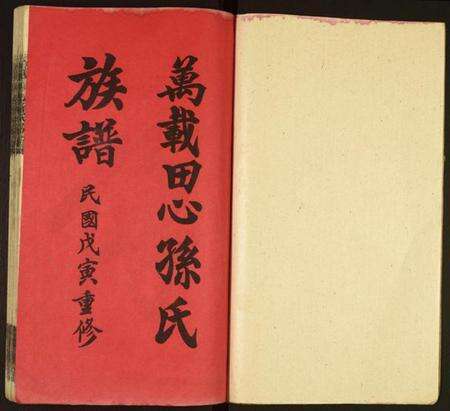 萬載田心孫氏
族譜
民國戊寅重修